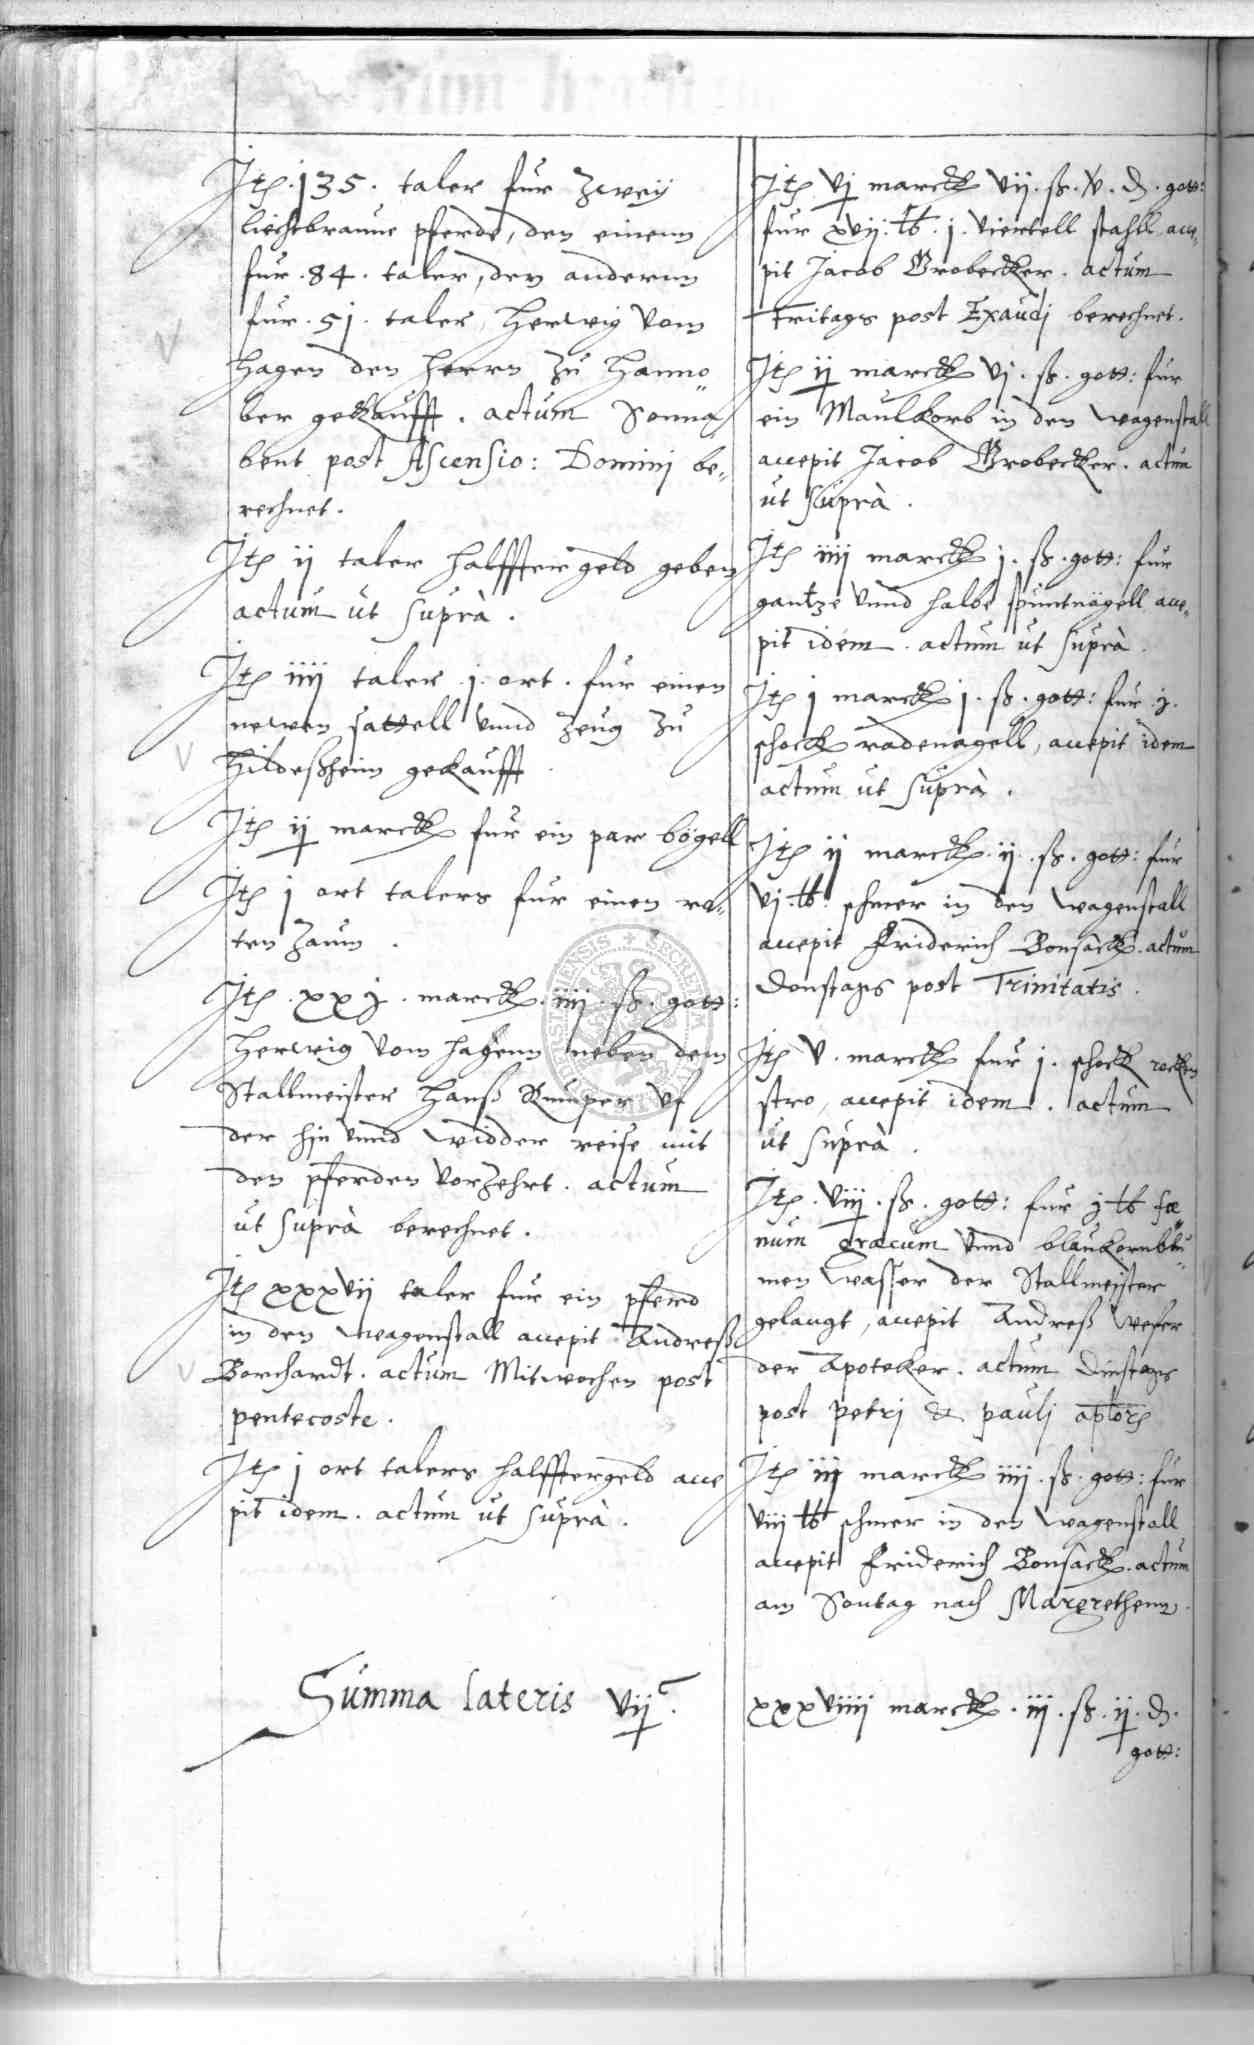 Itē. 135. taler fur zweÿ
liechtbraune pferde, den einenn
fur. 84. taler, den andernn
fur. 51. taler, Herwig vom
Hagen den herrn zu Hanno„
ber gekaufft. actum Sonna„
bent post Ascensio: Dominj be„
rechnet.
Itē ij taler halfftergeld geben
actum ut suprà.
Itē iiij taler j. ort. fur einen
newen sattell vnnd zeug zu
Hildeßheim gekaufft
Itē ij marck fur ein par bögell
Itē j ort talers fur einen ro„
ten zaum.
Itē. xxj. marck. iiij. ß. gott:
Herwig vom hagenn neben dem
Stallmeister Hanß vf
der hin vnnd widder reise mit
den pferden vorzehrt. actum
ut suprà berechnet.
Itē xxxvij taler fur ein pferd
in den wagenstall accepit Andreß
Borchardt. actum Mitwochen post
pentecoste.
Itē j ort talers halfftergeld acce
pit idem. actum ut suprà.
Summa lateris vijᶜ.
Itē vj marck vij. ß. v. d. gott:
fur xvij. ℔. j. viertell stahll acce„
pit Jacob Grobecker. actum
Fritags post Exaudj berechnet.
Itē ij marck vj. ß. gott: fur
ein Maulkorb in den wagenstall
accepit Jacob Grobecker. actum
ut suprà.
Itē iiij marck j. ß. gott: fur
gantze vnnd halbe spuntnägell acce„
pit idem. actum ut suprà
Itē j marck j. ß. gott: fur j.
schock radenagell, accepit idem
actum ut suprà.
Itē ij marck. ij. ß. gott: fur
vj. ℔. schmer in den wagenstall
accepit Friderich Bonsack. actum
Donstags post Trinitatis.
Itē v. marck fur j. schock rocken
stro, accepit idem. actum
ut suprà.
Itē. viij. ß. gott: fur j ℔ fœ
num græcum vnnd blaukornblu„
men wasser der Stallmeister
gelangt, accepit Andreß Wefer
der Apoteker. actum Dinstags
post Petrj & paulj aplorū
Itē iij marck iiij. ß. gott: fur
viij ℔ schmer in den wagenstall
accepit Friderich Bonsack. actum
am Sontag nach Margrethenn.
xxxviiij marck. iij. ß. ij. d.
gott: